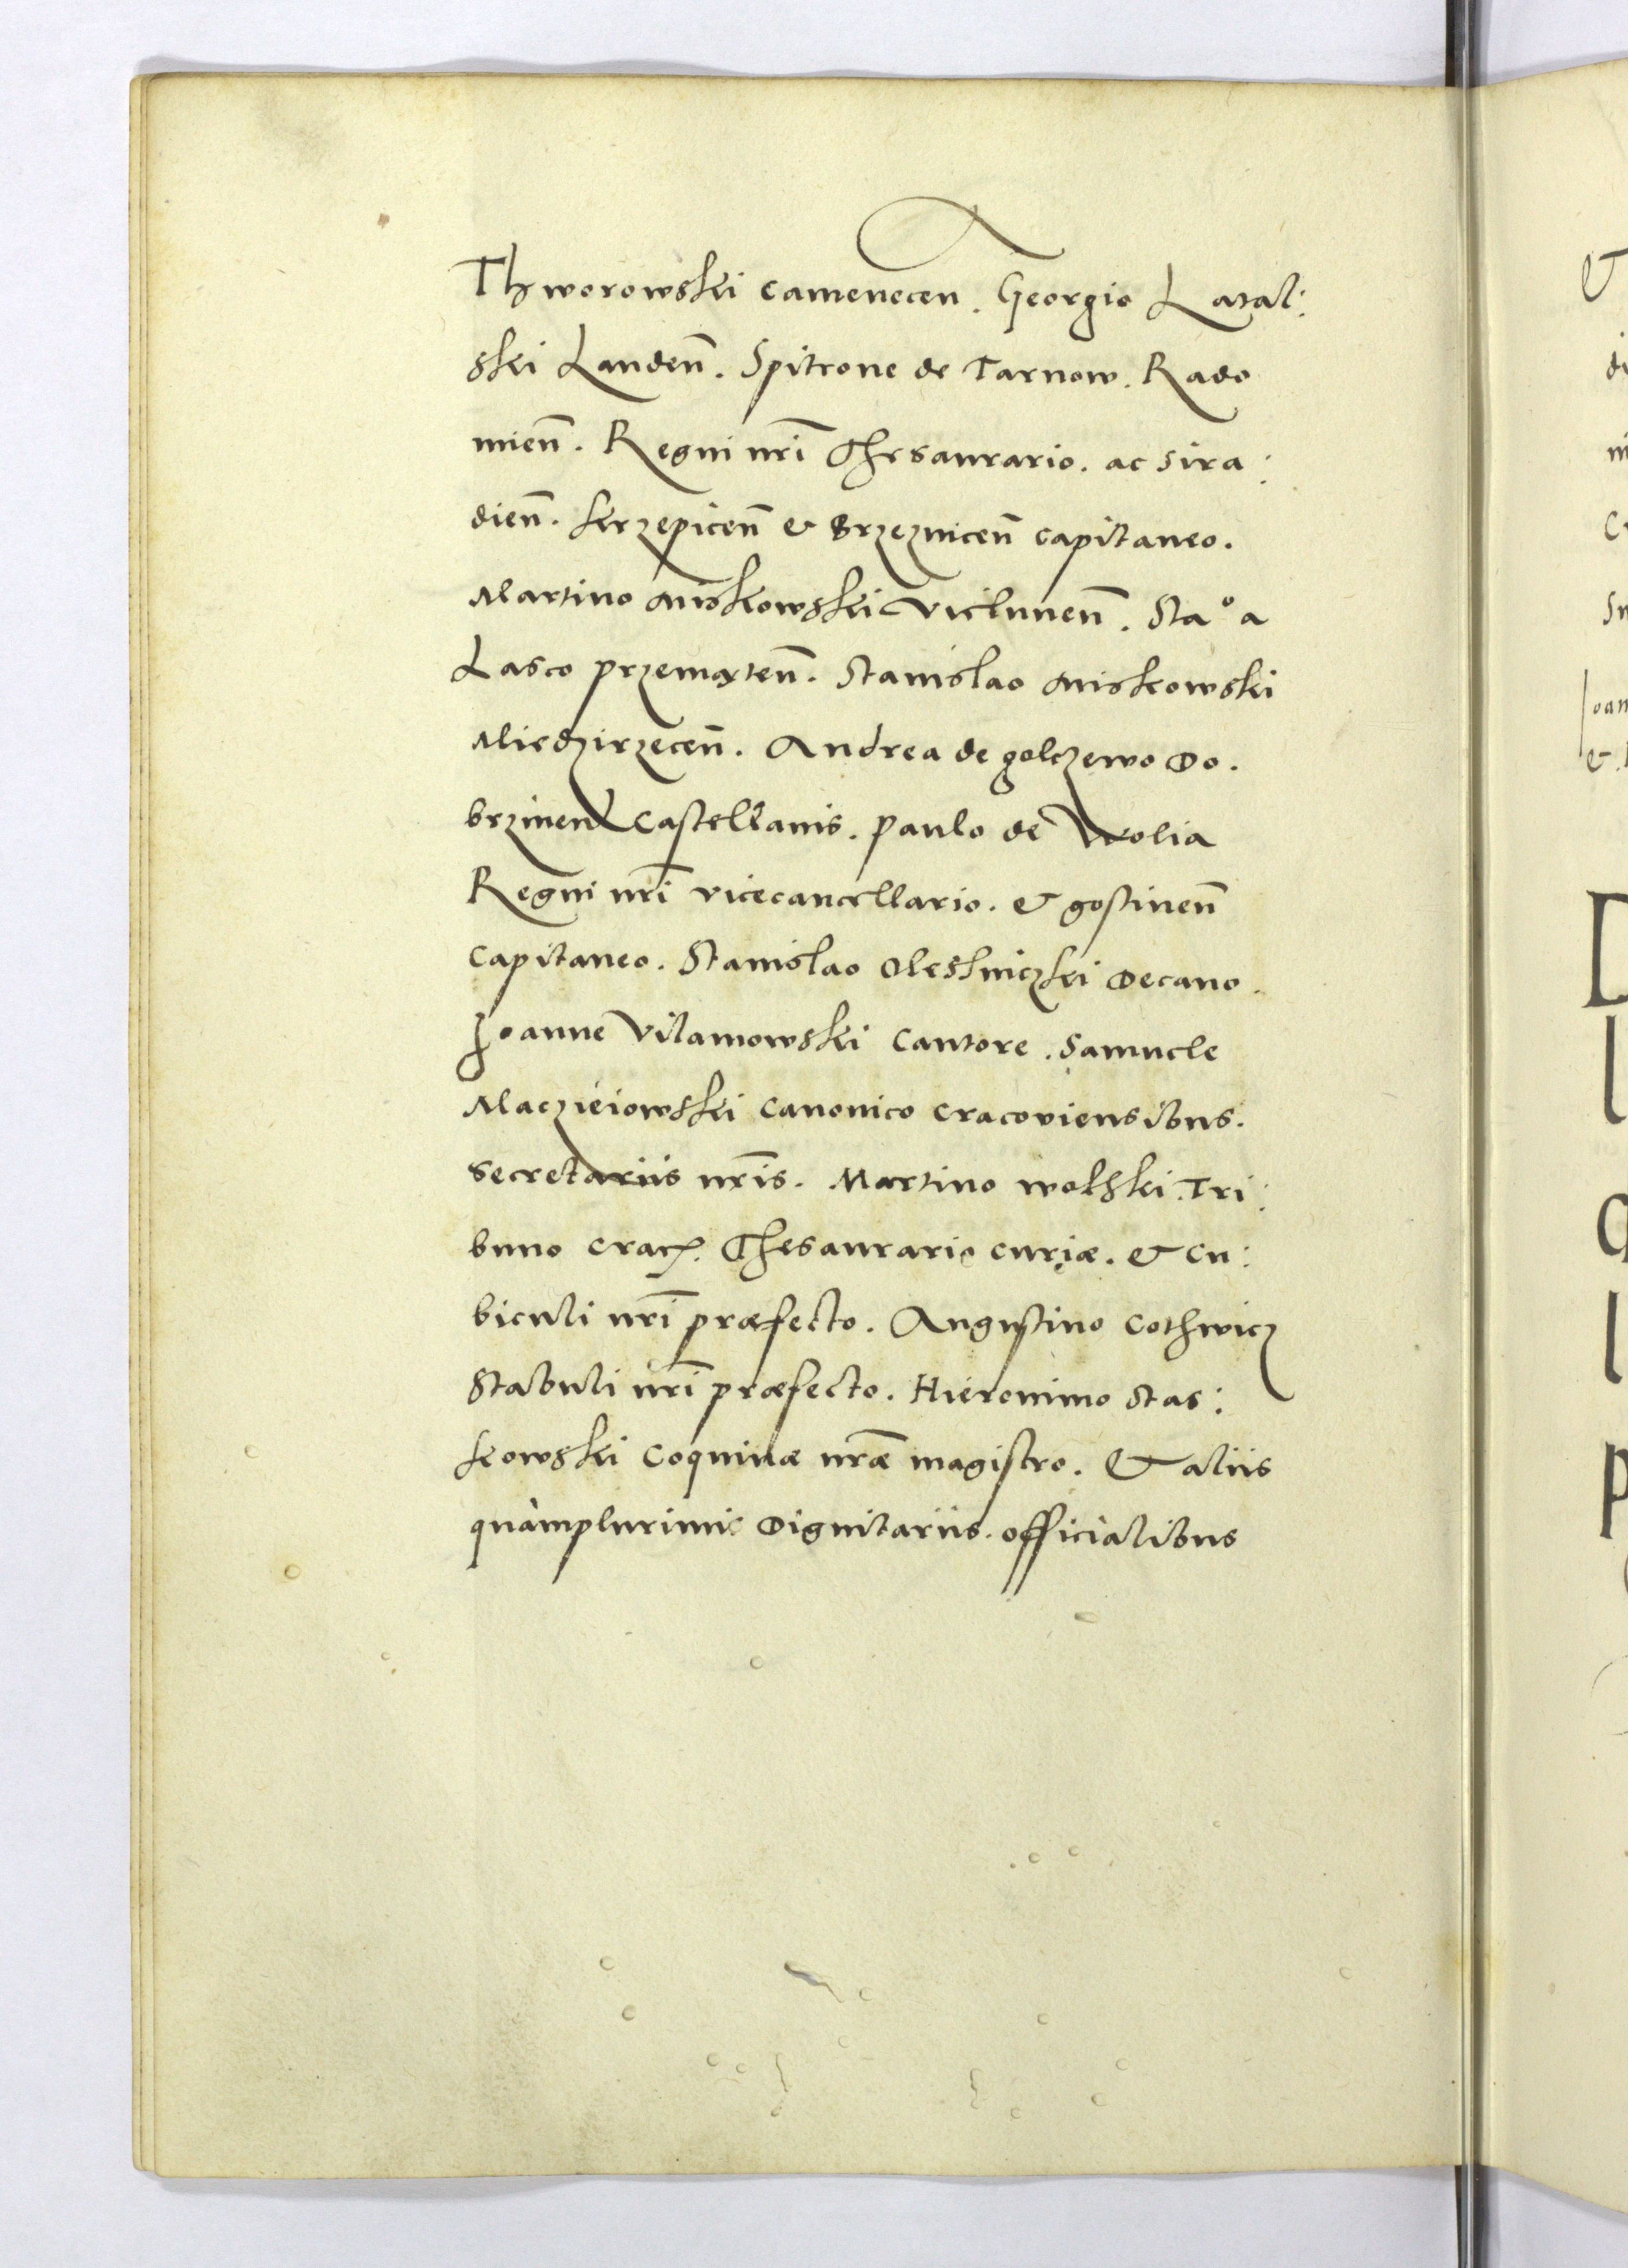 Thworowski camenecen. Georgio Latal:
ski Landen̄. Spitrone de Tarnow. Rado
mien̄. Regni nr̄i Thesaurario. ac sira:
dien̄. krzepicen̄ & Brzeznicen̄ capitaneo.
Martino Miskowski Vielunen̄. Staº a
Lasco przemæten̄. Stanislao Miskowski
Miedzirzecen̄. Andrea de golczewo Do.
brzinen̄ castellanis. Paulo de Wolia
Regni nr̄i vicecancellario. & gostinen̄
capitaneo. Stanislao Olesniczki Decano.
Joanne Vilamowski Cantore. Samuele
Maczieiowski canonico cracoviensibus.
secretariis nr̄is. Martino wolski. Tri:
buno Crac. Thesaurario curiæ. & cu:
biculi nr̄i præfecto. Augustino Cothwicz
Stabuli nr̄i præfecto. Hieronimo Stas:
kowski coquinæ nr̄æ magistro. & aliis
quàmplurimis Dignitariis. officialibus